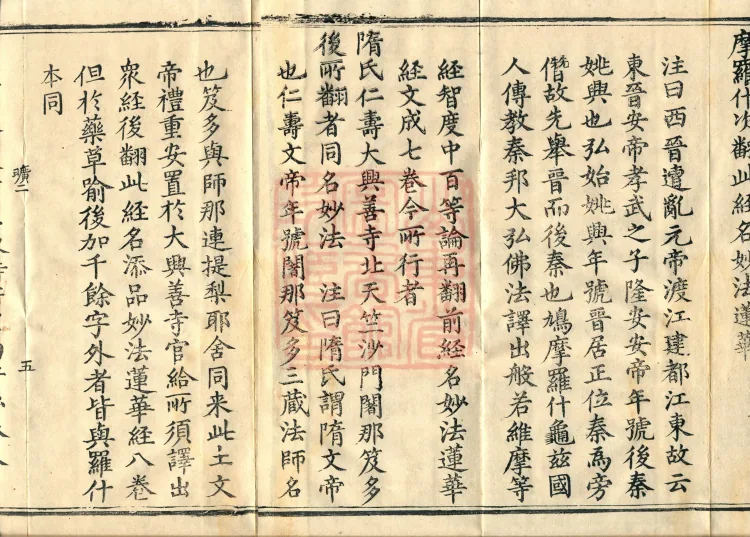 摩羅什次翻此經名妙法蓮華
注曰西晉遭亂元帝渡江建都江東故云
東晉安帝孝武之子隆安安帝年號後秦
姚興也弘始姚興年號晉居正位秦爲旁
僭故先舉晉而後秦也鳩摩羅什龜茲國
人傳教秦邦大弘佛法譯出般若維摩等
經智度中百等論再翻前經名妙法蓮華
經文成七卷今所行者
隋氏仁壽大興善寺北天竺沙門闍那笈多
後所翻者同名妙法 注曰隋氏謂隋文帝
也仁壽文帝年號闍那笈多三藏法師名
也笈多與師那連提梨耶舍同来此土文
帝禮重安置於大興善寺官給所須譯出
衆經後翻此經名添品妙法蓮華經八卷
但於藥草喻後加千餘字外者皆與羅什
本同
曠二 五